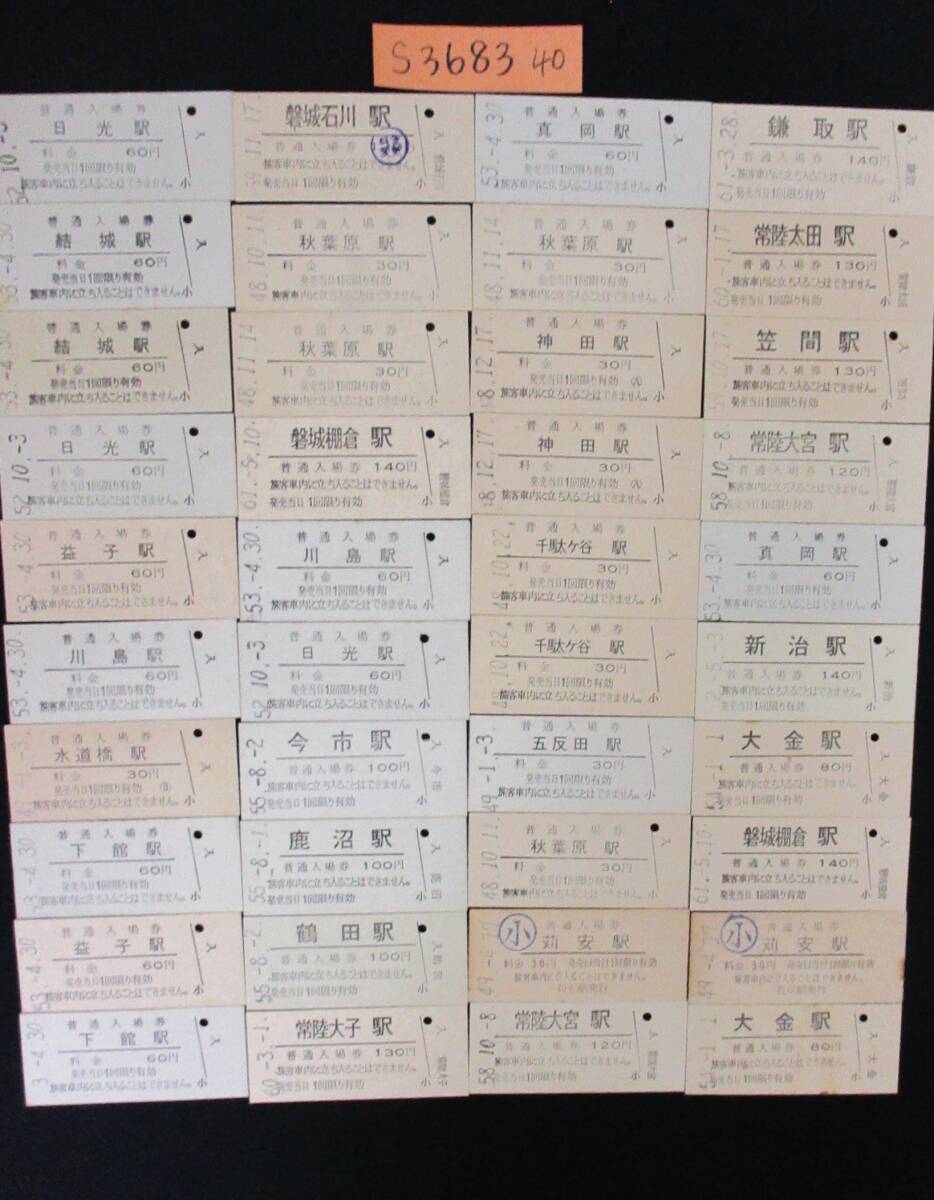 S3683 40
普通入場券
日光駅
料金 60円
発売当日1回限り有効
旅客車内に立ち入ることはできません。 小
52.10.-3
磐城石川駅
普通入場券
旅客車内に立ち入ることはできません。
発売当日1回限り有効 小
59.11.17
普通入場券
真岡駅
料金 60円
発売当日1回限り有効
旅客車内に立ち入ることはできません。 小
53.-4.30
鎌取駅
普通入場券 140円
旅客車内に立ち入ることはできません。
発売当日1回限り有効 小
61.-3.28
普通入場券
結城駅
料金 60円
発売当日1回限り有効
旅客車内に立ち入ることはできません。 小
53.-4.30
普通入場券
秋葉原駅
料金 30円
発売当日1回限り有効
旅客車内に立ち入ることはできません。 小
48.10.11
普通入場券
秋葉原駅
料金 30円
発売当日1回限り有効
旅客車内に立ち入ることはできません。 小
48.11.14
常陸太田駅
普通入場券 130円
旅客車内に立ち入ることはできません。
発売当日1回限り有効 小
60.-1.17
普通入場券
結城駅
料金 60円
発売当日1回限り有効
旅客車内に立ち入ることはできません。 小
53.-4.30
普通入場券
秋葉原駅
料金 30円
発売当日1回限り有効
旅客車内に立ち入ることはできません。 小
48.11.14
普通入場券
神田駅
料金 30円
発売当日1回限り有効
旅客車内に立ち入ることはできません。 小
48.12.17
笠間駅
普通入場券 130円
旅客車内に立ち入ることはできません。
発売当日1回限り有効 小
普通入場券
日光駅
料金 60円
発売当日1回限り有効
旅客車内に立ち入ることはできません。 小
52.10.-3
磐城棚倉駅
普通入場券 140円
旅客車内に立ち入ることはできません。
発売当日1回限り有効 小
61.-5.10
普通入場券
神田駅
料金 30円
発売当日1回限り有効
旅客車内に立ち入ることはできません。 小
48.12.17
常陸大宮駅
普通入場券 120円
旅客車内に立ち入ることはできません。
発売当日1回限り有効 小
58.10.-8
普通入場券
益子駅
料金 60円
発売当日1回限り有効
旅客車内に立ち入ることはできません。 小
53.-4.30
普通入場券
川島駅
料金 60円
発売当日1回限り有効
旅客車内に立ち入ることはできません。 小
53.-4.30
普通入場券
千駄ケ谷駅
料金 30円
発売当日1回限り有効
旅客車内に立ち入ることはできません。 小
49.10.22
普通入場券
真岡駅
料金 60円
発売当日1回限り有効
旅客車内に立ち入ることはできません。 小
53.-4.30
普通入場券
川島駅
料金 60円
発売当日1回限り有効
旅客車内に立ち入ることはできません。 小
53.-4.30
普通入場券
日光駅
料金 60円
発売当日1回限り有効
旅客車内に立ち入ることはできません。 小
52.10.-3
普通入場券
千駄ケ谷駅
料金 30円
発売当日1回限り有効
旅客車内に立ち入ることはできません。 小
49.10.22
新治駅
普通入場券 140円
旅客車内に立ち入ることはできません。
発売当日1回限り有効 小
普通入場券
水道橋駅
料金 30円
発売当日1回限り有効
旅客車内に立ち入ることはできません。 小
今市駅
普通入場券 100円
旅客車内に立ち入ることはできません。
発売当日1回限り有効 小
今市
55.-8.-2
普通入場券
五反田駅
料金 30円
発売当日1回限り有効
旅客車内に立ち入ることはできません。 小
49.-1.-3
大金駅
普通入場券 80円
旅客車内に立ち入ることはできません。
発売当日1回限り有効 小
大金
普通入場券
下館駅
料金 60円
発売当日1回限り有効
旅客車内に立ち入ることはできません。 小
鹿沼駅
普通入場券 100円
旅客車内に立ち入ることはできません。
発売当日1回限り有効 小
55.-8.-1
普通入場券
秋葉原駅
料金 30円
発売当日1回限り有効
旅客車内に立ち入ることはできません。 小
48.10.11
磐城棚倉駅
普通入場券 140円
旅客車内に立ち入ることはできません。
発売当日1回限り有効 小
61.-5.10
普通入場券
益子駅
料金 60円
発売当日1回限り有効
旅客車内に立ち入ることはできません。 小
53.-4.30
鶴田駅
普通入場券 100円
旅客車内に立ち入ることはできません。
発売当日1回限り有効 小
55.-8.-2
小
普通入場券
苅安駅
料金 30円 発売当日1回限り有効
旅客車内に立ち入ることはできません。
小
普通入場券
苅安駅
料金 30円 発売当日1回限り有効
旅客車内に立ち入ることはできません。
普通入場券
下館駅
料金 60円
発売当日1回限り有効
旅客車内に立ち入ることはできません。 小
常陸大子駅
普通入場券 130円
旅客車内に立ち入ることはできません。
発売当日1回限り有効 小
60.-3.-1
常陸大宮駅
普通入場券 120円
旅客車内に立ち入ることはできません。
発売当日1回限り有効 小
58.10.-8
大金駅
普通入場券 80円
旅客車内に立ち入ることはできません。
発売当日1回限り有効 小
大金